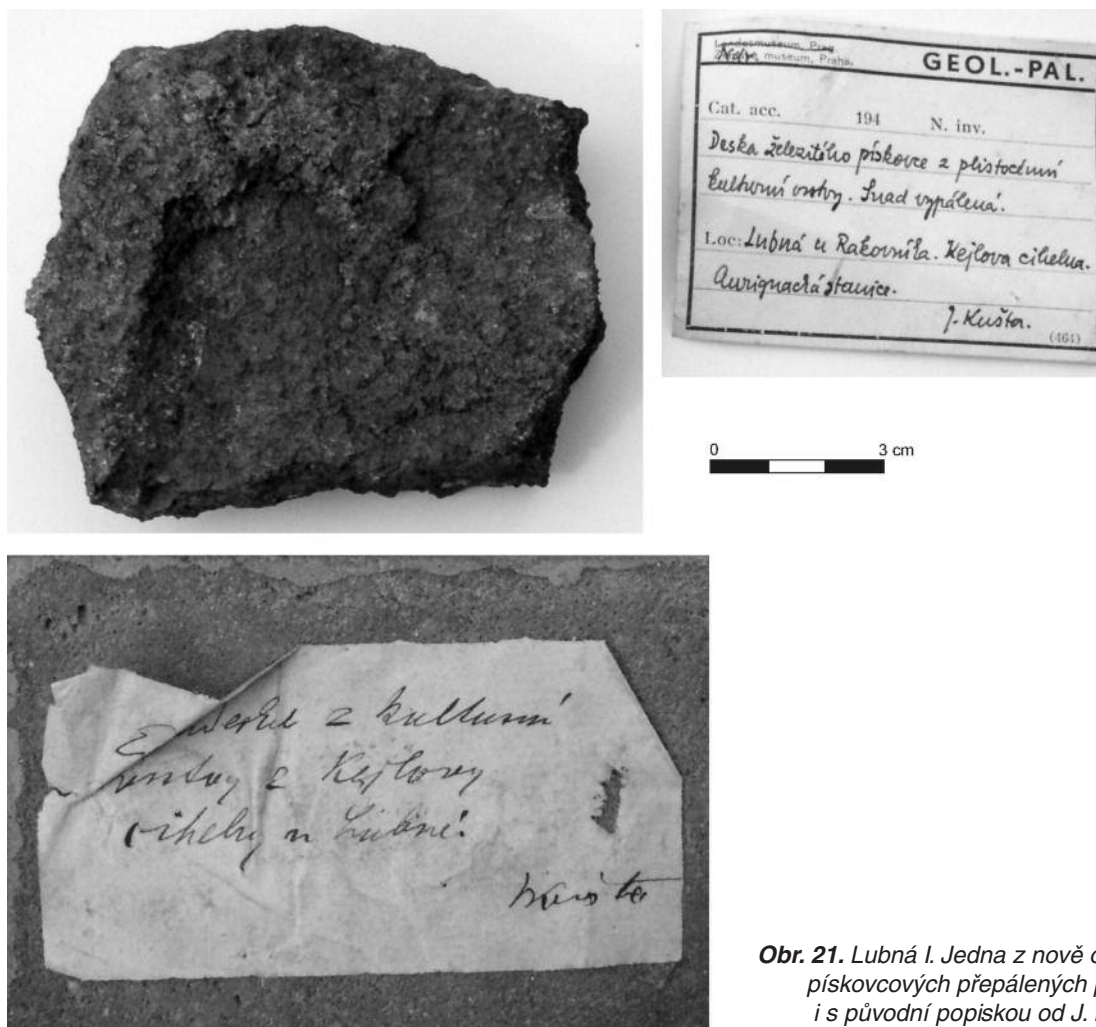 Landesmuseum, Prag.
Nár. museum, Praha.
GEOL.-PAL.
Cat. acc. 194 N. inv.
Deska železitého pískovce z plistocénní
kulturní vrstvy. Snad vypálená.
Loc: Lubná u Rakovníka. Kejlova cihelna.
Aurignacká stanice.
J. Kušta.
(464)
0 3 cm
deska z kulturní
vrstvy z Kejlovy
cihelny u Lubné.
Kušta
Obr. 21. Lubná I. Jedna z nově
pískovcových přepálených
i s původní popiskou od J.